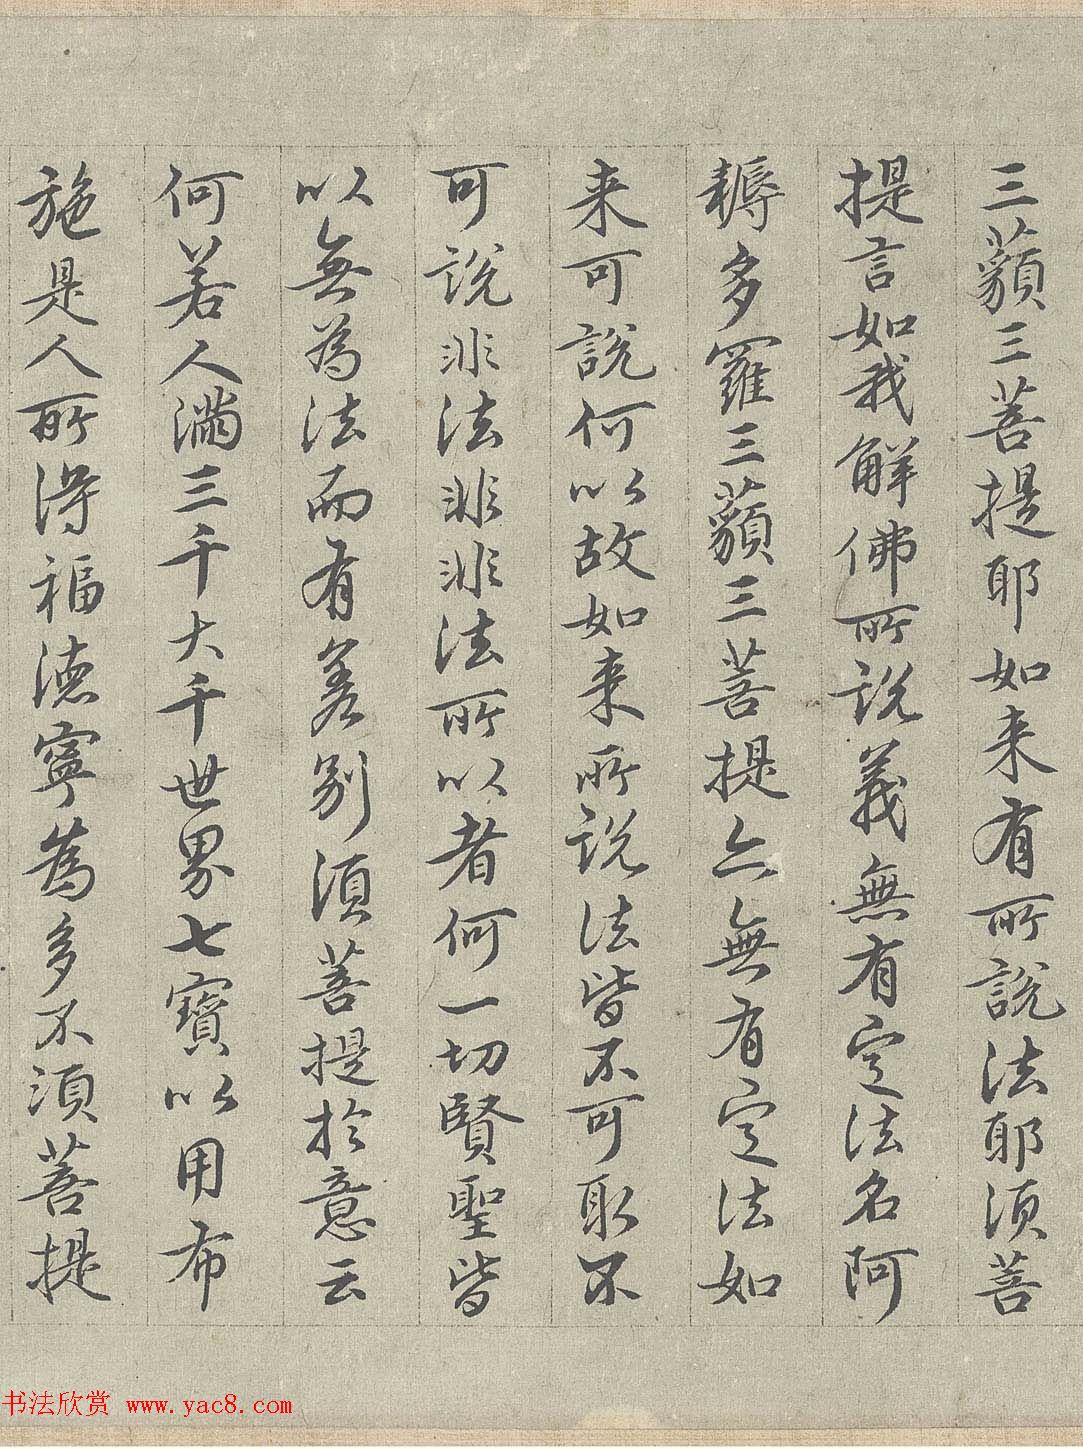 三藐三菩提耶如来有所說法耶須菩
提言如我解佛所說義無有定法名阿
耨多羅三藐三菩提亦無有定法如
来可說何以故如来所說法皆不可取不
可說非法非非法所以者何一切賢聖皆
以無為法而有差别須菩提於意云
何若人滿三千大千世界七寶以用布
施是人所得福德寧為多不須菩提
书法欣赏 www.yac8.com